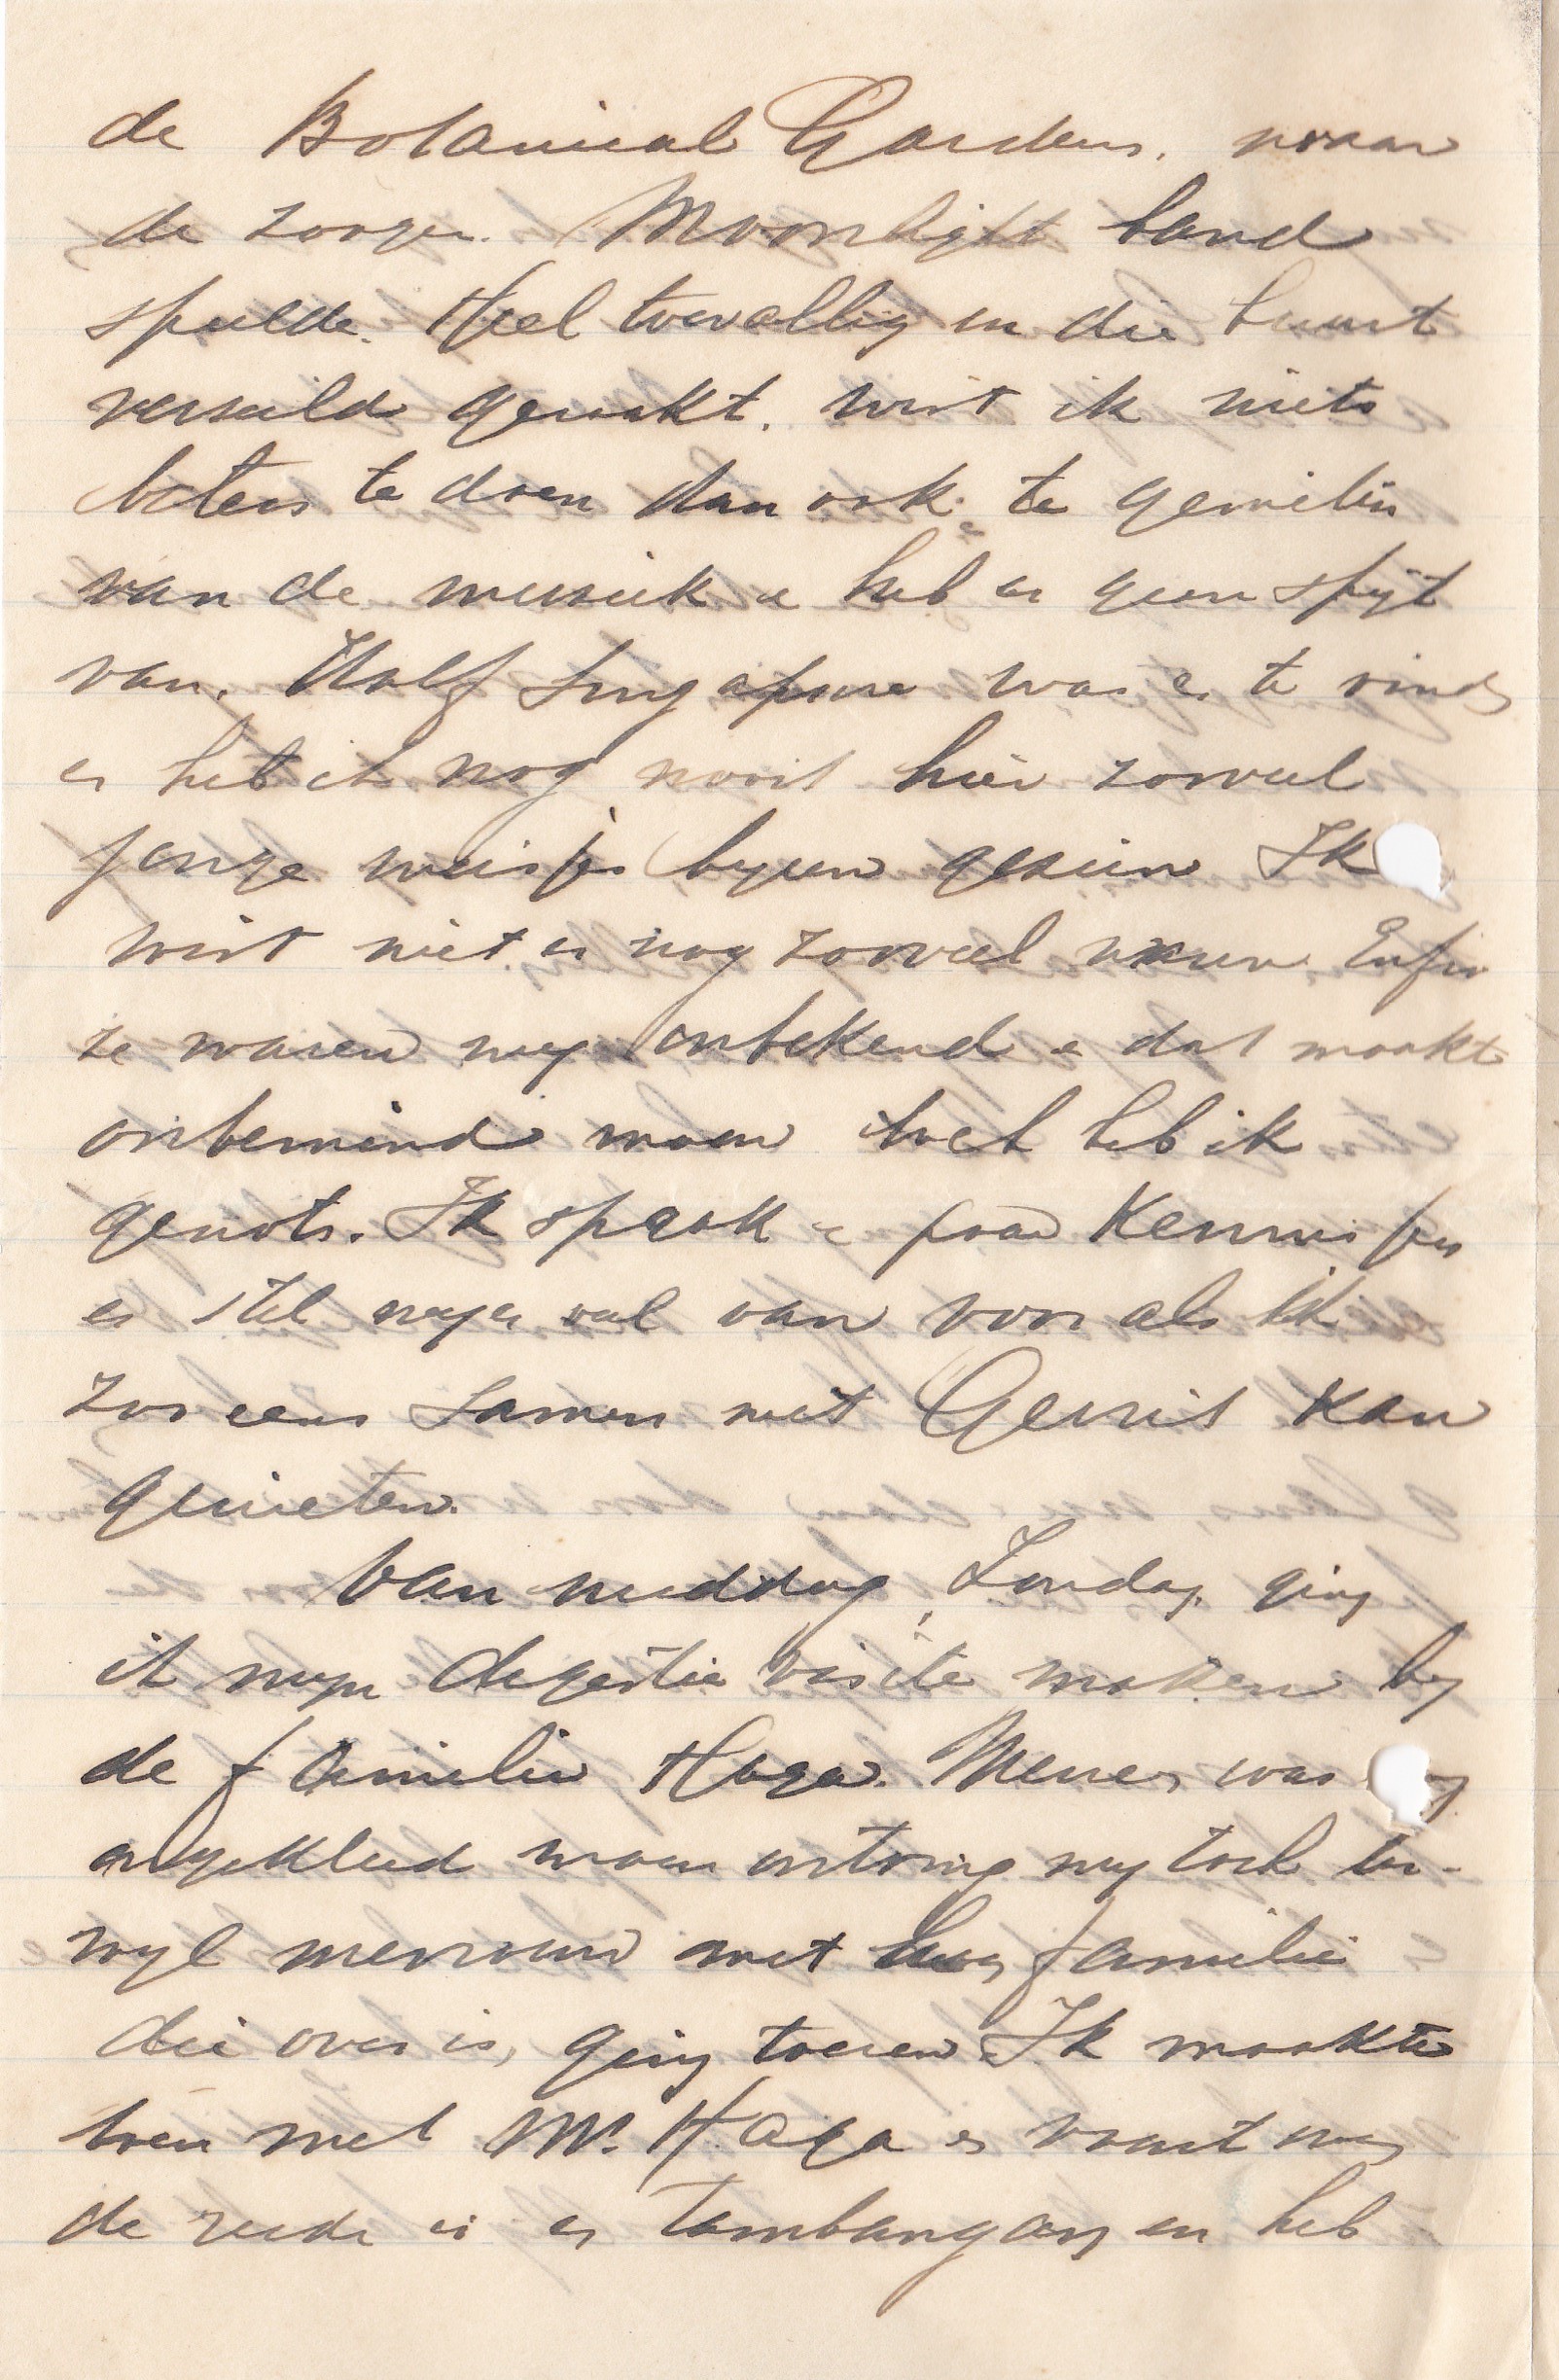 de Botanical Gardens, waar
de zoogen. Moonlight band
speelde. Heel toevallig in die buurt
verzeild geraakt, wist ik niets
beters te doen dan ook te genieten
van de muziek e heb er geen spijt
van. Half Singapore was er te vinden
en heb ik nog nooit hier zooveel
jonge meisjes byeen gezien Ik
wist niet er nog zooveel waren. Enfin
ze waren my onbekend e dat maakt
onbemind maar toch heb ik
genots. Ik sprak e paar Kennisjes
en stel my er veel van voor als ik
zoo eens samen met Gerrit kan
genieten.
Van middag, Zondag, ging
ik myn digestie visite maken by
de familie Haga. Meneer was
ongekleed maar ontving my toch ter-
wyl mevrouw met haar familie
die over is, ging toeren. Ik maakte
toen met Mr. Haga en
de reede en tambangan en heb